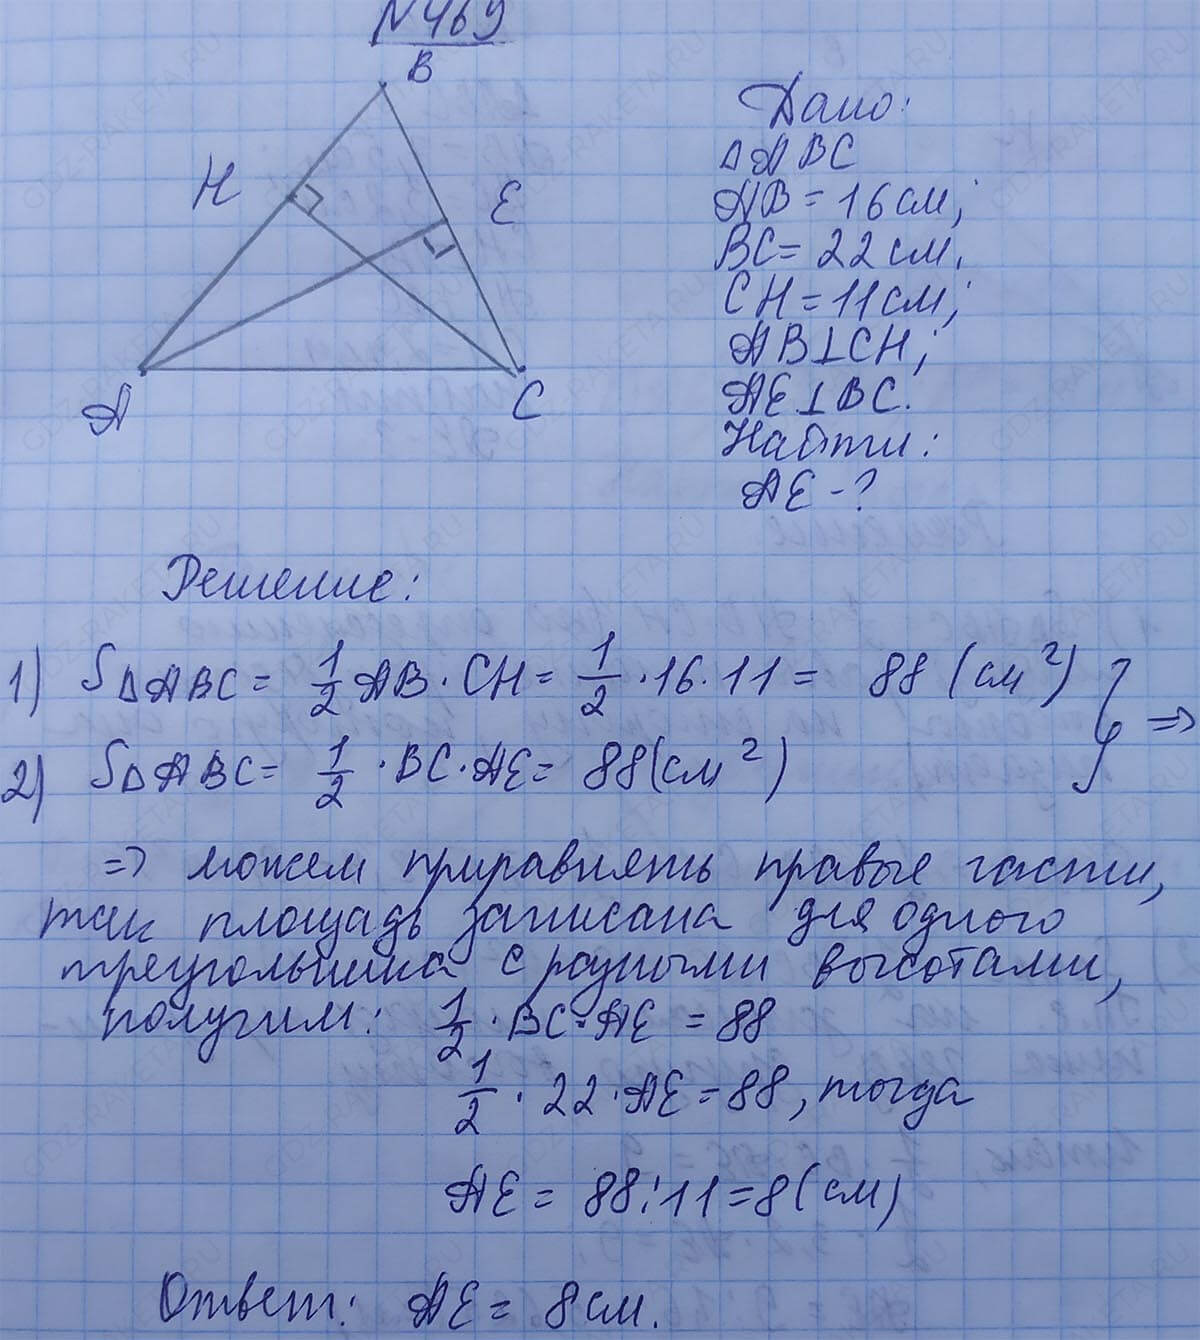 N469
B
H
E
A
C
Дано:
△ABC
AB = 16 см;
BC = 22 см.
CH = 11 см;
AB⊥CH;
AE⊥BC.
Найти:
AE - ?
Решение:
1) S△ABC = 1/2 AB · CH = 1/2 · 16 · 11 = 88 (см²) } =>
2) S△ABC = 1/2 · BC · AE = 88 (см²)
=> можем приравнять правые части,
так площадь записана для одного
треугольника с разными высотами,
получим: 1/2 · BC · AE = 88
1/2 · 22 · AE = 88, тогда
AE = 88 : 11 = 8 (см)
Ответ: AE = 8 см.
GDZ-RAKETA.RU